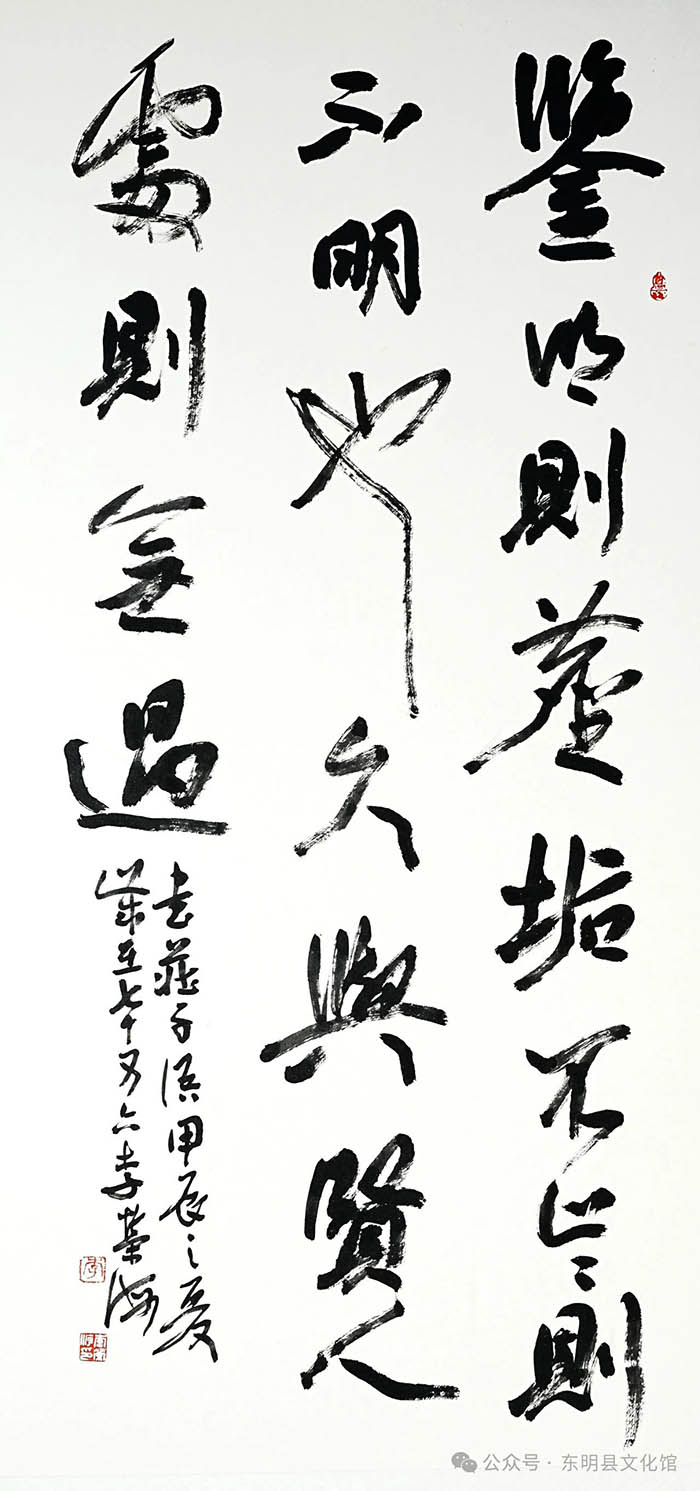 鑒明則塵垢不止〻則
不明也久與賢人
處則無過
書莊子語甲辰之夏
歲在七十又六李榮海
公众号 · 东明县文化馆